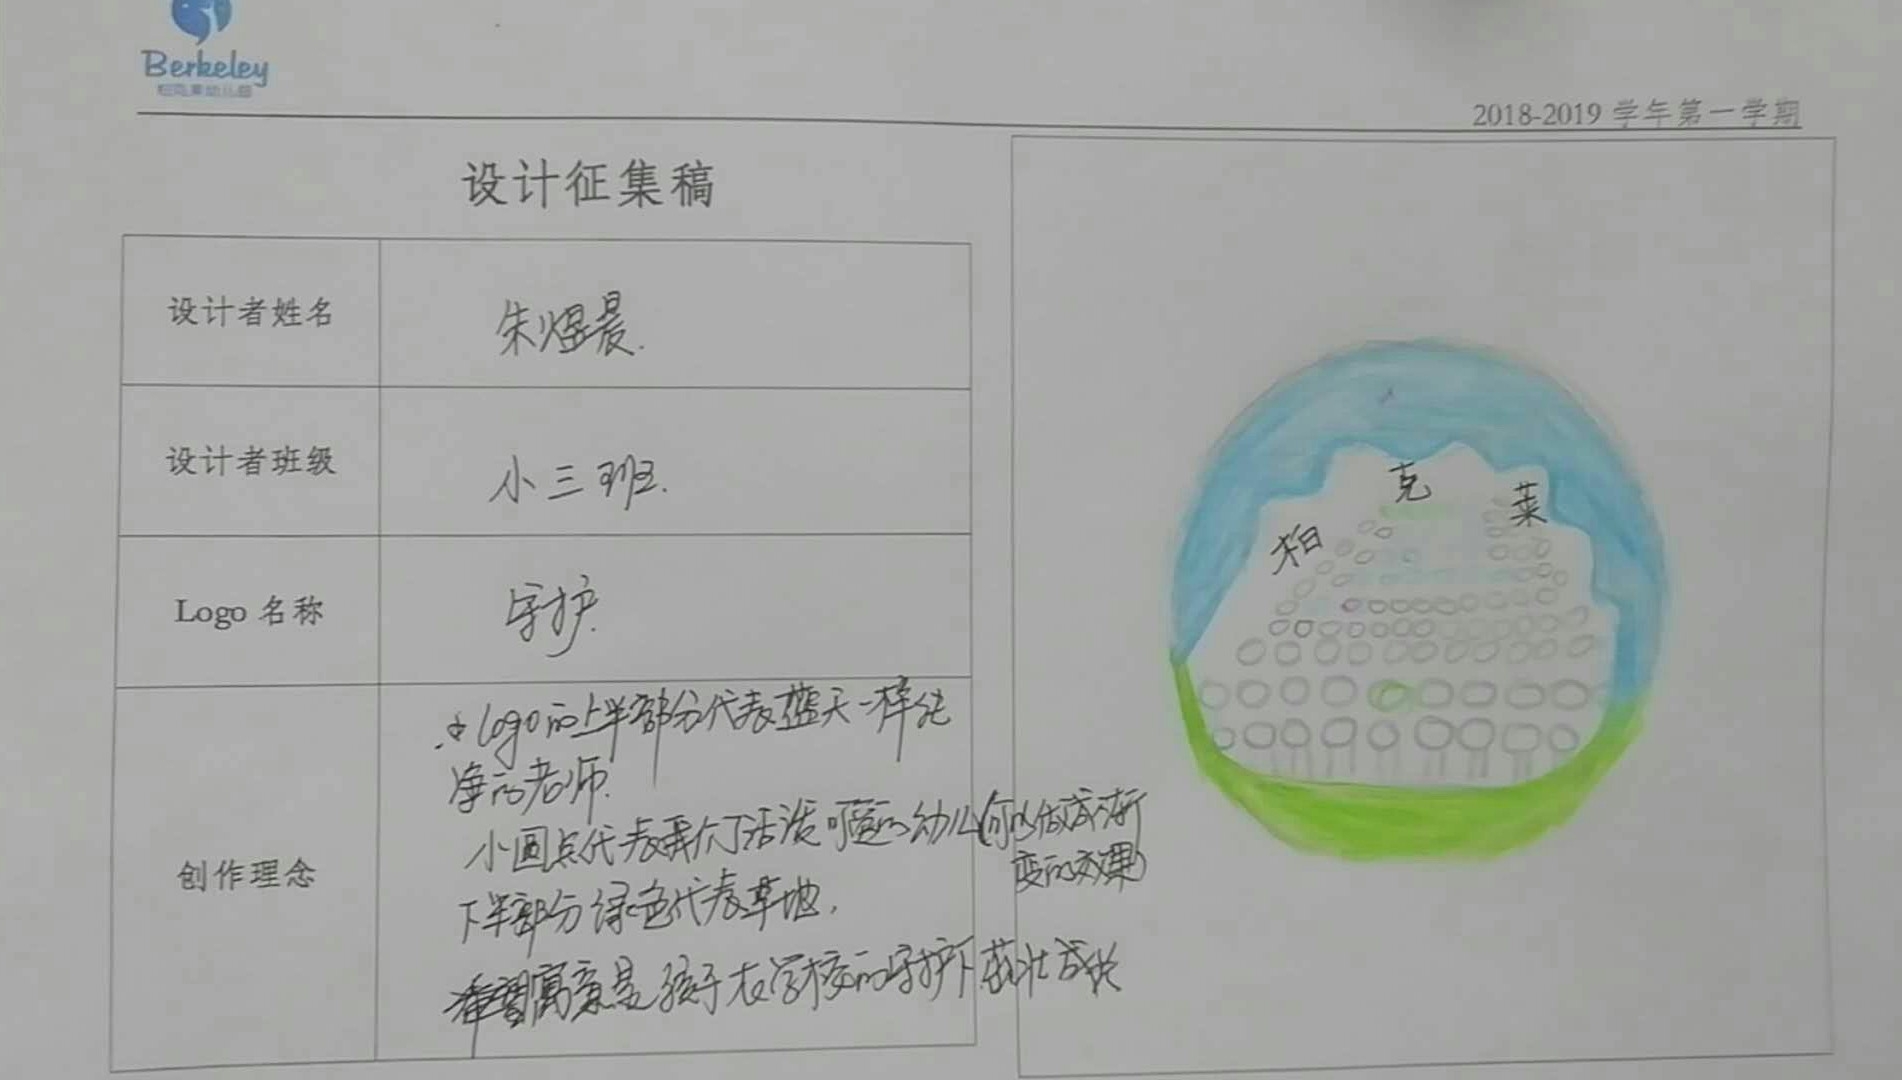 Berkeley
柏克莱幼儿园
2018-2019 学年第一学期
设计征集稿
设计者姓名
朱煜晨.
设计者班级
小三班.
Logo 名称
守护.
创作理念
logo的上半部分代表蓝天一样纯
净的老师.
小圆点代表我们活泼可爱的幼儿(可以做成渐
变的效果)
下半部分绿色代表草地.
寓意是孩子在学校的守护下茁壮成长
柏
克
莱